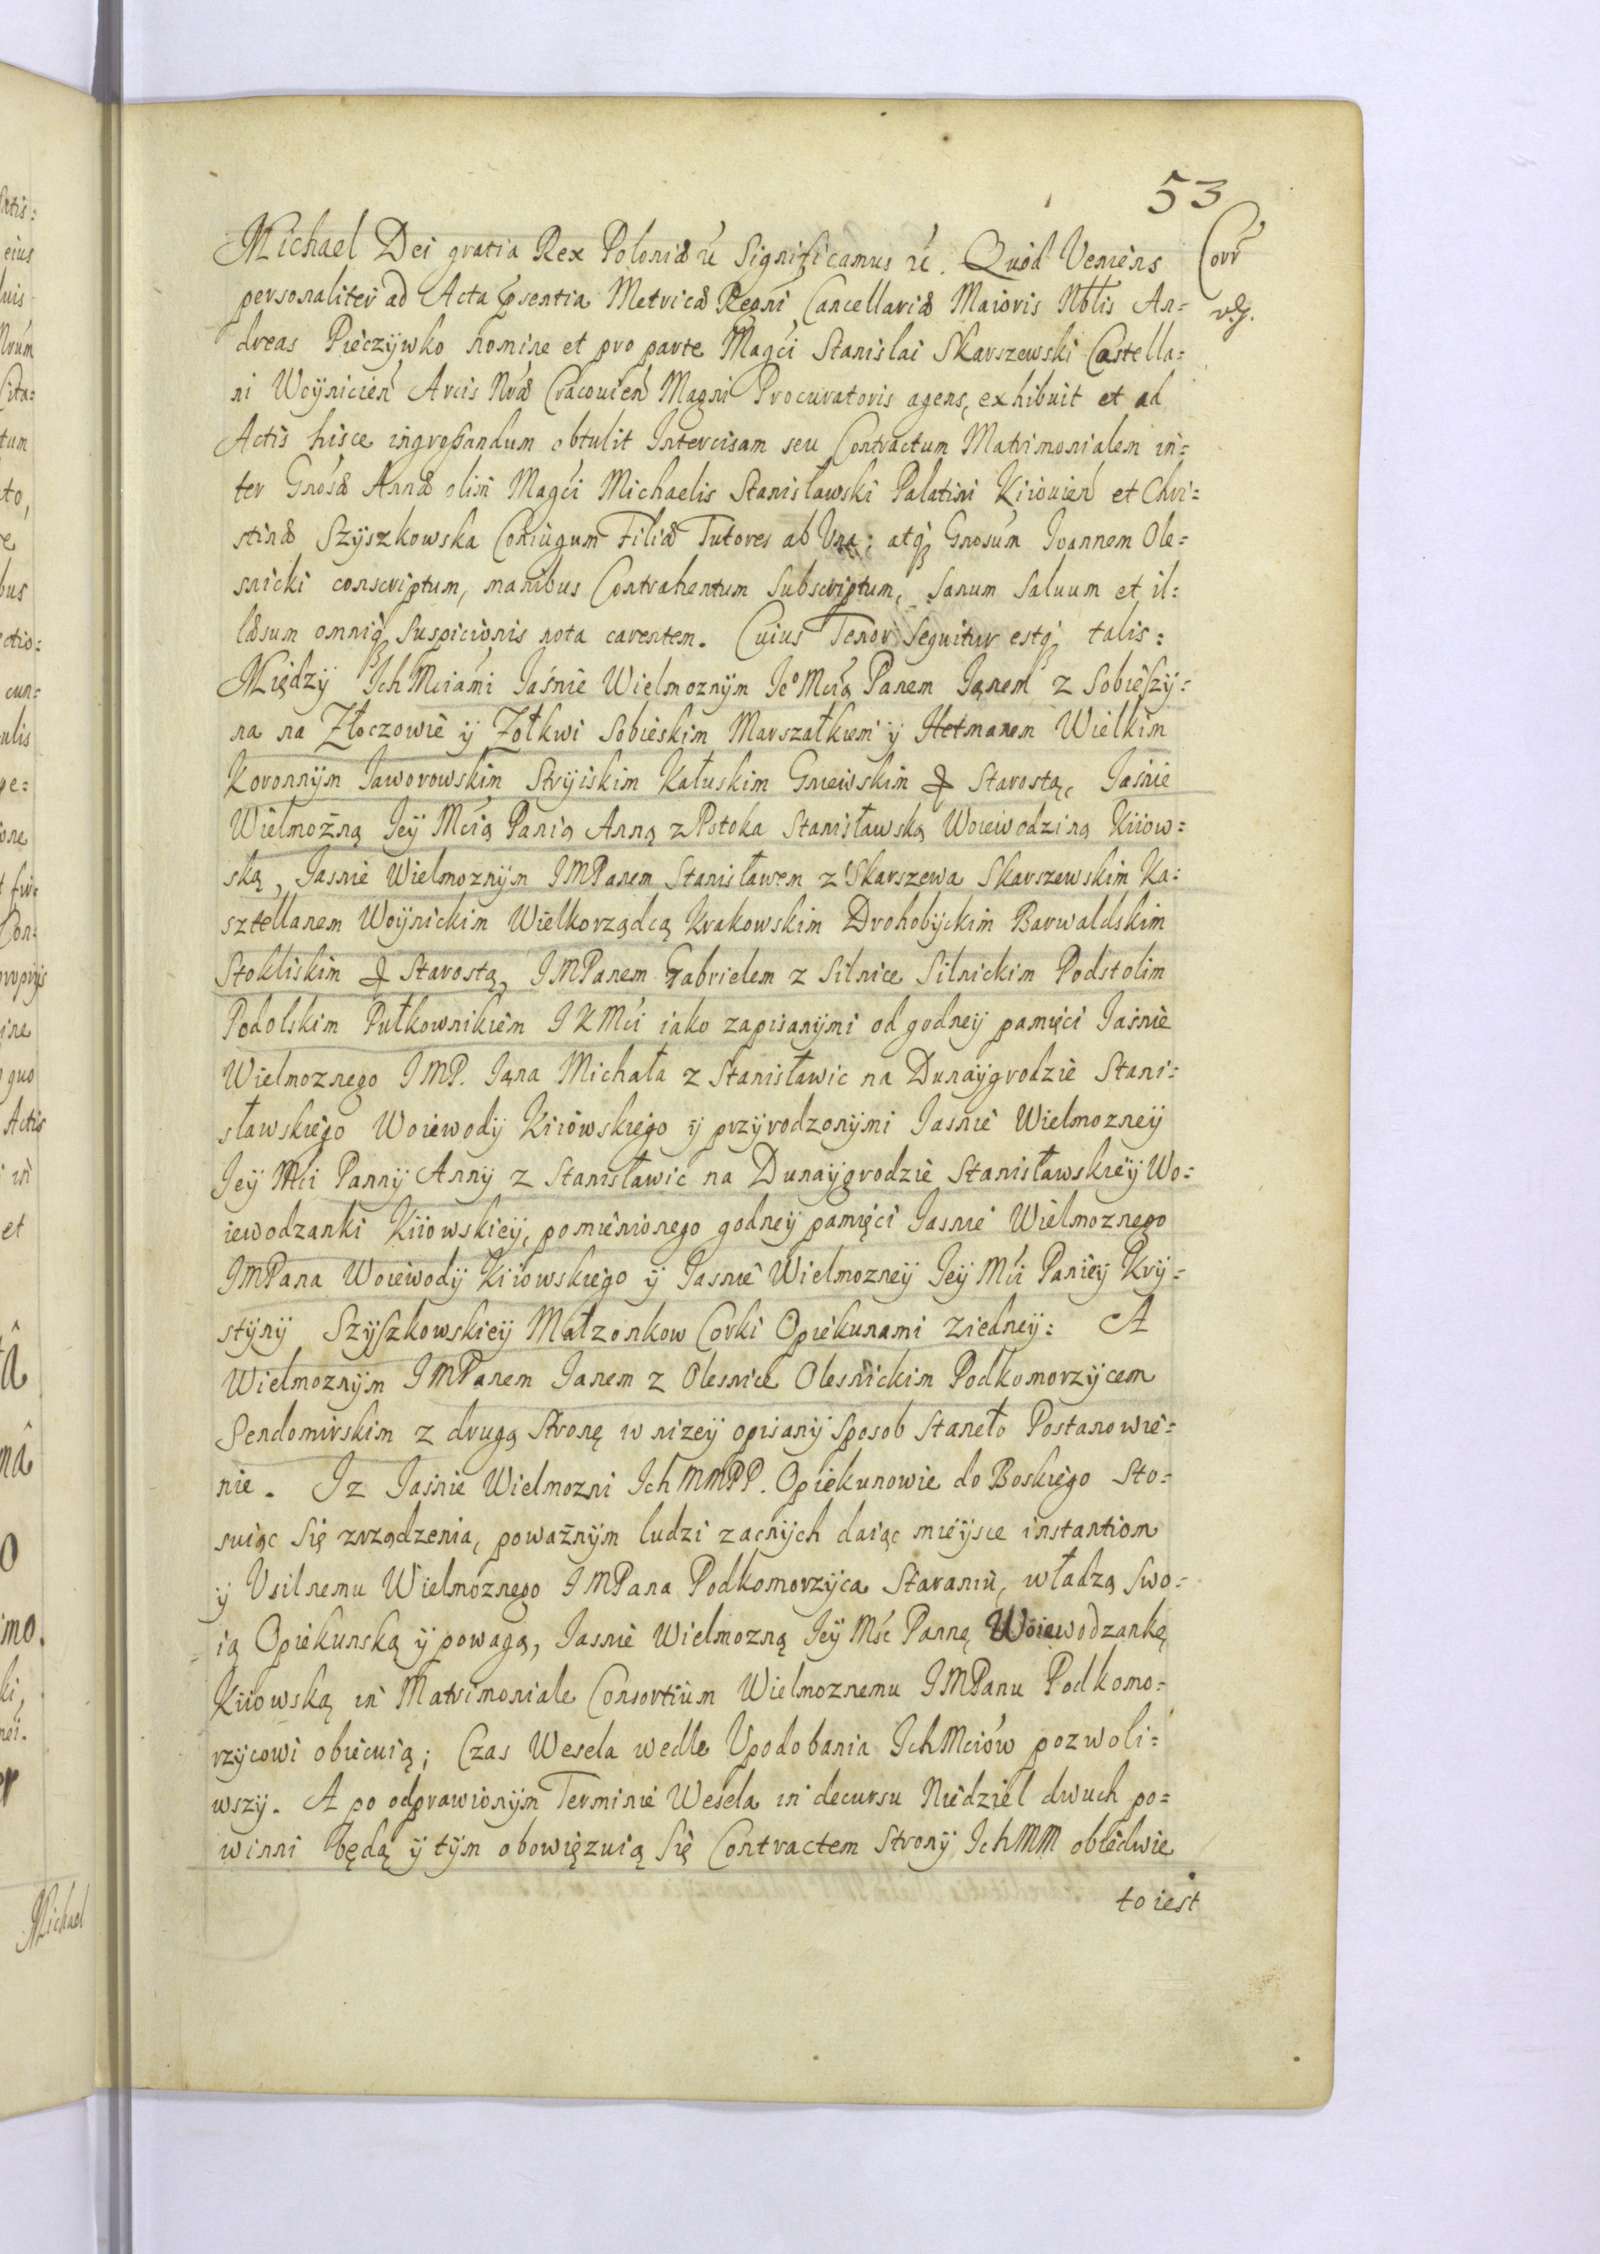 53
Michael Dei gratia Rex Poloniæ &c Significamus &c. Quòd Veniens
personaliter ad Acta pſentia Metricæ Regni Cancellariæ Maioris Nblis An=
dreas Pieczywko nomine et pro parte Magci Stanislai Skarszewski Castella=
ni Woÿnicień Arcis Nræ Cracouień Magni Procuratoris agens, exhibuit et ad
Actis hisce ingroſsandum obtulit Intercisam seu Contractum Matrimonialem in=
ter Gnosæ Annæ olim Magci Michaelis Stanisławski Palatini Kiiouień et Chri=
stinæ Szÿszkowska Coniugum Filiæ Tutores ab Una; atq Gnosum Joannem Ole=
snicki conscriptum, manibus Contrahentum Subscriptum, Sanum Saluum et il=
læsum omniq Suspicionis nota carentem. Cuius Tenor Sequitur estq talis:
Między IchMciami Jaśnie Wielmoznÿm Ie⁰ Mcią Panem Janem z Sobieſzÿ=
na na Złoczowie ÿ Zołkwi Sobieskim Marszałkiem ÿ Hetmanem Wielkim
Koronnÿm Jaworowskim Strÿiskim Kałuskim Gniewskim & Starostą, Jaśnie
Wielmożną Jeÿ Mcią Panią Anną z Potoka Stanisławską Woiewodziną Kiiow=
ską, Jasnie Wielmoznÿm IMPanem Stanisławem z Skarszewa Skarszewskim Ka=
sztellanem Woÿnickim Wielkorządcą Krakowskim Drohobÿckim Barwaldskim
Stokliskim & Starostą, IMPanem Gabrielem z Silnice Silnickim Podstolim
Podolskim Pułkownikiem IKMci iako zapisanÿmi od godneÿ pamięci Jaśnie
Wielmoznego IMP. Jana Michała z Stanisławic na Dunaÿgrodzie Stani=
sławskiego Woiewodÿ Kiiowskiego ÿ przÿrodzonÿmi Jasnie Wielmozneÿ
Jeÿ Mci Pannÿ Annÿ z Stanisławic na Dunaÿgrodzie Stanisławskieÿ Wo=
iewodzanki Kiiowskieÿ, pomienionego godneÿ pamięci Jasnie Wielmoznego
IMPana Woiewodÿ Kiiowskiego ÿ Jasnie Wielmozneÿ Jeÿ Mci Panieÿ Krÿ=
stÿnÿ Szÿſzkowskieÿ Małzonkow Corki Opiekunami ziedneÿ: A
Wielmoznÿm IMPanem Janem z Olesnice Olesnickim Podkomorzÿcem
Sendomirskim z drugą Stronę w nizeÿ opisanÿ Sposob Staneło Postanowie=
nie. Iz Jaśnie Wielmozni Ich MMPP. Opiekunowie do Boskiego Sto=
suiąc Się zrządzenia, poważnÿm ludzi zacnÿch daiąc mieÿsce instantiom
ÿ Usilnemu Wielmoznego IMPana Podkomorzÿca Staraniu, władzą Swo=
ią Opiekunską ÿ powagą, Jasnie Wielmozną Jeÿ Mść Pannę Woiewodzankę
Kiiowską in Matrimoniale Consortium Wielmoznemu IMPanu Podkomo=
rzÿcowi obiecuią; Czas Wesela wedle Upodobania IchMciow pozwoli=
wszÿ. A po odprawionÿm Terminie Wesela in decursu Niedziel dwuch po=
winni będą ÿ tÿm obowięzuią Się Contractem Stronÿ IchMM obiedwie
to iest
Corr
Michael